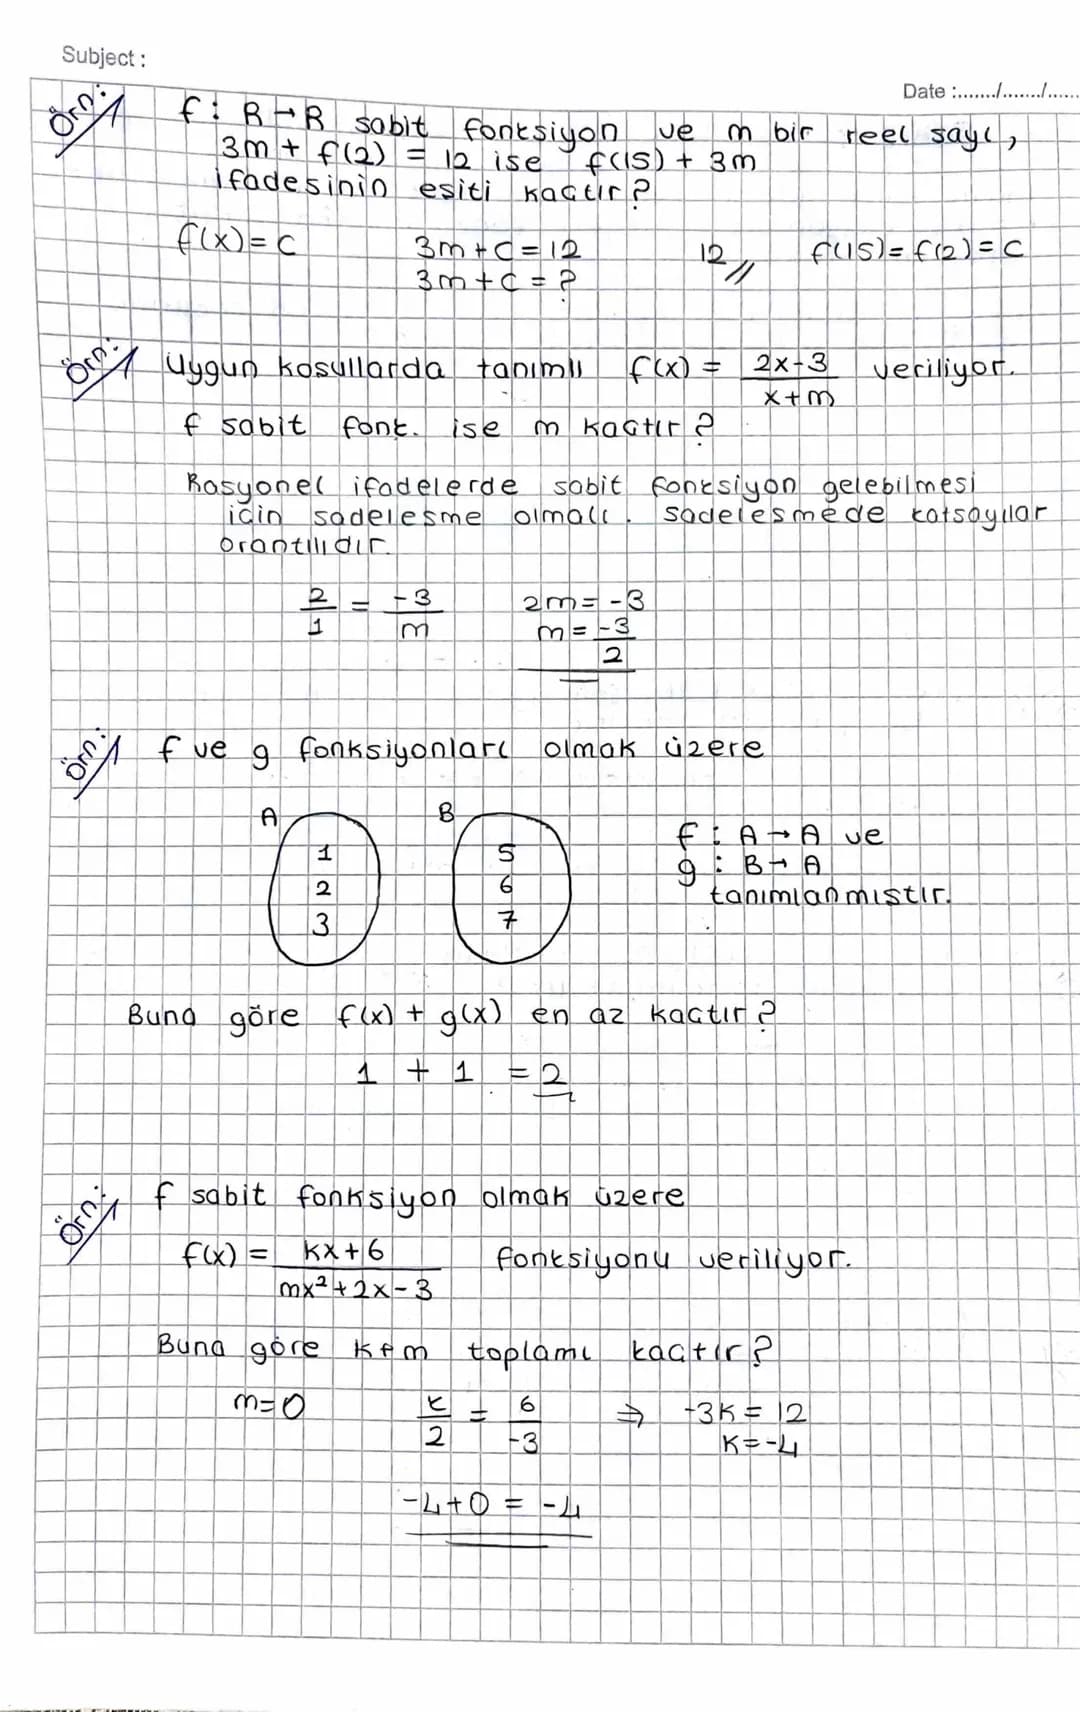 Subject :
Date :......./......./......
Örn: f : R → R sabit fonksiyon ve m bir reel sayı,
3m + f(2) = 12 ise f(15) + 3m
ifadesinin esiti kaçtır?
f(x) = c 3m + c = 12 12 // f(15) = f(2) = c
3m + c = ?
Örn: Uygun kosullarda tanımlı f(x) = 2x-3 / x+m veriliyor.
f sabit fonk. ise m kaçtır?
Rasyonel ifadelerde sabit fonksiyon gelebilmesi
için sadelesme olmalı. Sadelesmede katsayılar
orantılıdır.
2/1 = -3/m 2m = -3
m = -3/2
Örn: f ve g fonksiyonları olmak üzere
A B
1 5 f : A → A ve
2 6 g : B → A
3 7 tanımlanmıstır.
Buna göre f(x) + g(x) en az kaçtır?
1 + 1 = 2
Örn: f sabit fonksiyon olmak üzere
f(x) = kx+6 / mx²+2x-3 fonksiyonu veriliyor.
Buna göre k+m toplamı kaçtır?
m=0 k/2 = 6/-3 ⇒ -3k = 12
k = -4
-4+0 = -4